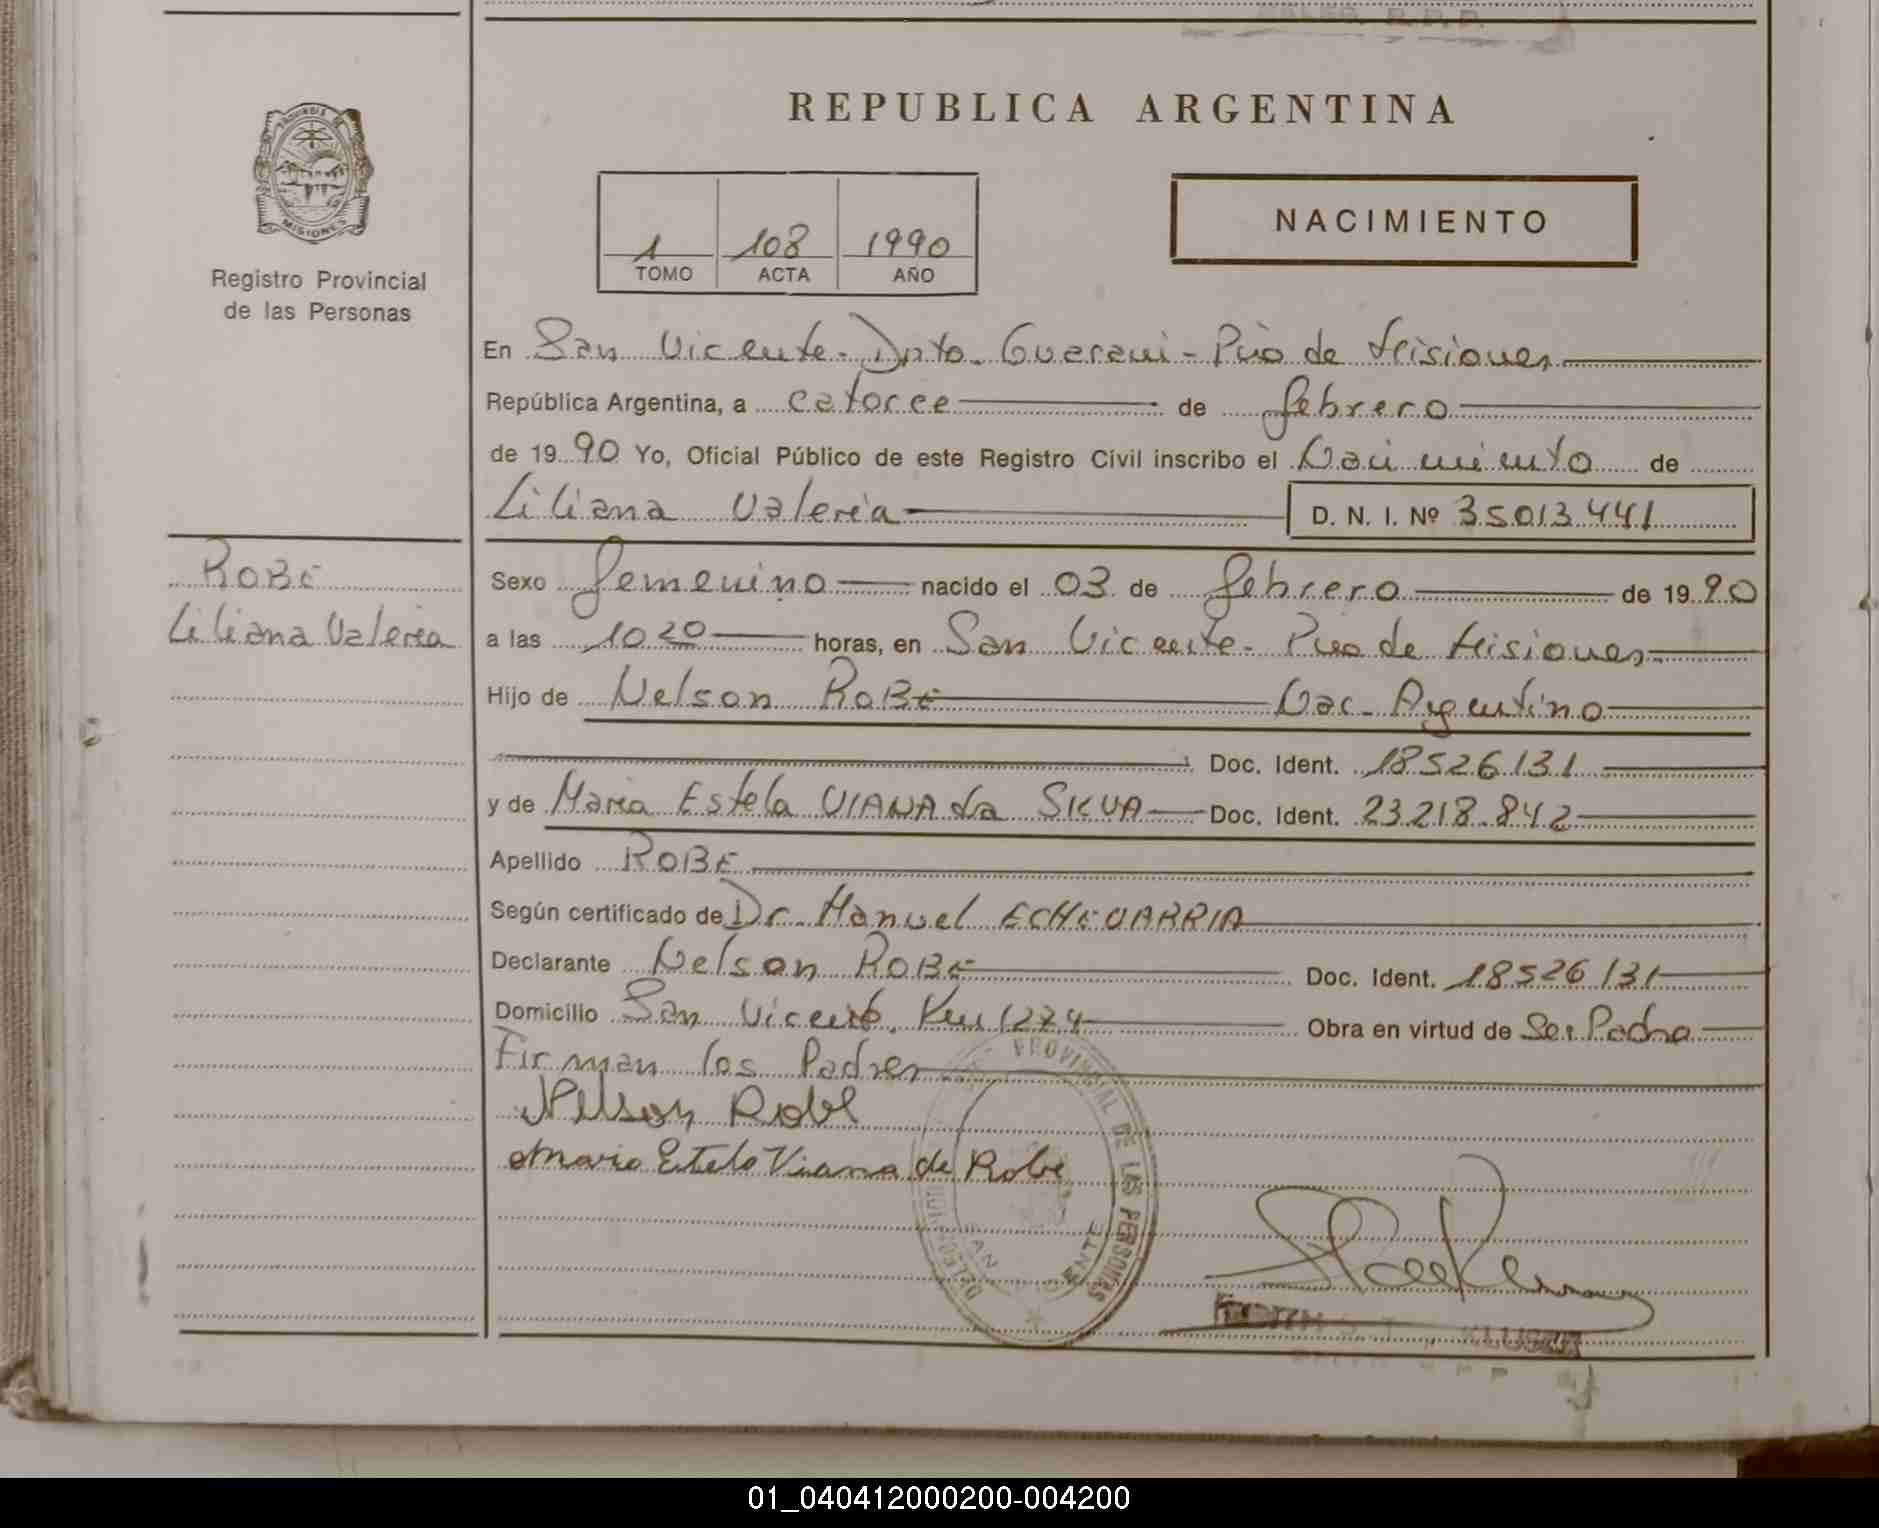 REPUBLICA ARGENTINA
MISIONES
Registro Provincial
de las Personas
1 108 1990
TOMO ACTA AÑO
NACIMIENTO
En San Vicente - Dpto. Guarani - Pcia de Misiones
República Argentina, a catorce de febrero
de 1990 Yo, Oficial Público de este Registro Civil inscribo el Nacimiento de
Liliana Valeria D. N. I. Nº 35013441
ROBE
Liliana Valeria
Sexo femenino nacido el 03 de febrero de 1990
a las 10 20 horas, en San Vicente - Pcia de Misiones
Hijo de Nelson ROBE Nac. Argentino
Doc. Ident. 18526131
y de Maria Estela VIANA da SILVA Doc. Ident. 23.218.842
Apellido ROBE
Según certificado de Dr. Manuel ECHEVARRIA
Declarante Nelson ROBE Doc. Ident. 18526131
Domicilio San Vicente, Km 1274 Obra en virtud de Ser Padre
Firman los Padres
Nelson Robe
Maria Estela Viana de Robe
PROVINCIAL DE LAS PERSONAS
SAN VICENTE
01_040412000200-004200